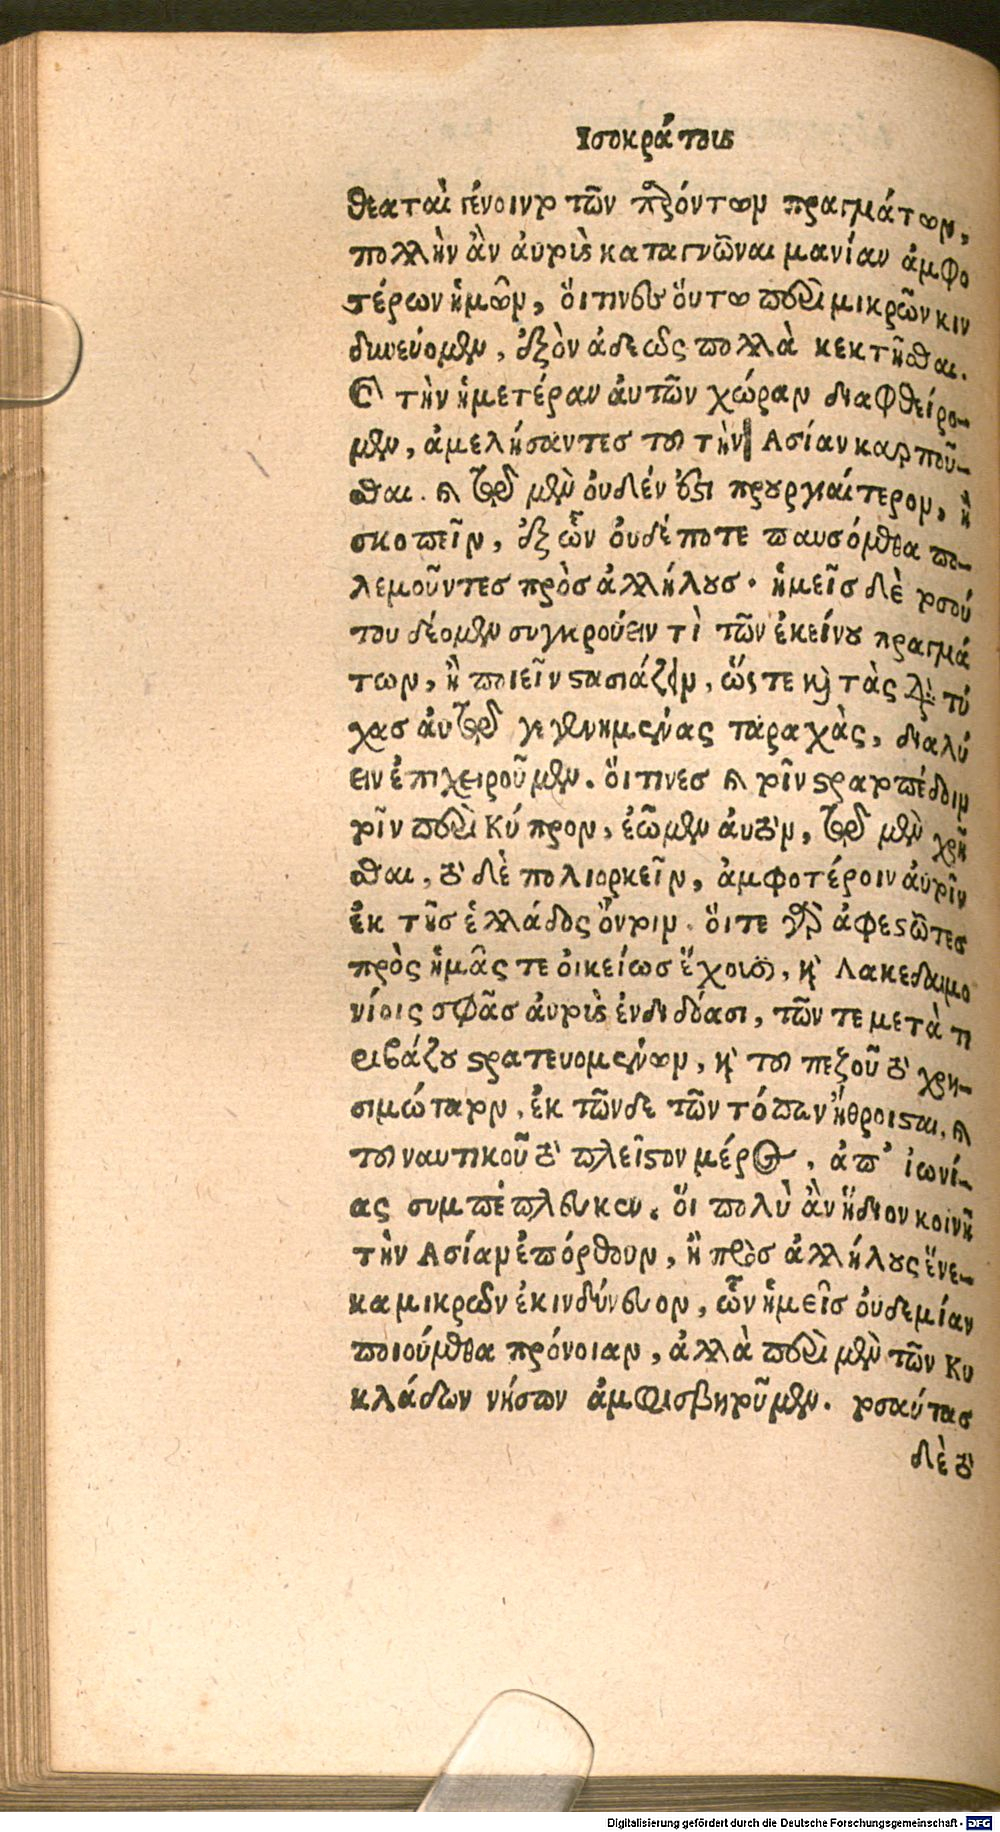 Ισοκράτους
θεαταὶ γένοιντο τῶν παρόντων πραγμάτων,
πολλὴν ἂν αὐτοὺς καταγνῶναι μανίαν ἀμφο
τέρων ἡμῶν, ὅιτινες ὅυτω περὶ μικρῶν κιν
δυνεύομεν, ἐξὸν ἀδεῶς πολλὰ κεκτῆσθαι.
Καὶ τὴν ἡμετέραν ἀυτῶν χώραν διαφθείρο-
μεν, ἀμελήσαντες τοῦ τὴν Ασίαν καρποῦ-
σθαι. καὶ τῷ μὲν ὀυδέν ἐστι προυργιαίτερον, ἢ
σκοπεῖν, ἐξ ὧν ὀυδέποτε παυσόμεθα πο-
λεμοῦντες πρὸς ἀλλήλους. ἡμεῖς δὲ τοσού
του δέομεν συγκρούειν τὶ τῶν ἐκείνου πραγμά
των, ἢ ποιεῖν στασιάζειν, ὥστε καὶ τὰς διὰ τύ
χας ἀυτῷ γεγενημένας ταραχὰς, διαλύ
ειν ἐπιχειροῦμεν. ὅιτινες καὶ τοῖν στρατοπέδοιν
τοῖν περὶ Κύπρον, ἐῶμεν ἀυτὸν, τῷ μὲν χρῆ
σθαι, τὸ δὲ πολιορκεῖν, ἀμφοτέροιν ἀυτοῖν
ἐκ τῆς ἑλλάδος ὄντοιν. ὅιτε γὰρ ἀφεστῶτες
πρὸς ἡμᾶς τε ὀικείως ἔχουσι, καὶ Λακεδαιμο
νίοις σφᾶς ἀυτοὺς ἐνδιδόασι, τῶν τε μετὰ τι
ειβάζου στρατευομένων, καὶ τοῦ πεζοῦ τὸ χρη-
σιμώτατον, ἐκ τῶνδε τῶν τόπων ἤθροισται, καὶ
τοῦ ναυτικοῦ τὸ πλεῖστον μέρος, ἀπ᾽ ἰωνί-
ας συμπέπλευκεν. ὅι πολὺ ἂν ἥδιον κοινῆ
τὴν Ασίαν ἐπόρθουν, ἢ πρὸς ἀλλήλους ἕνε-
κα μικρῶν ἐκινδύνευον, ὧν ἡμεῖς ὀυδεμίαν
ποιούμεθα πρόνοιαν, ἀλλὰ περὶ μὲν τῶν Κυ
κλάδων νήσων ἀμφισβητοῦμεν. τοσαύτας
δὲ τὸ
Digitalisierung gefördert durch die Deutsche Forschungsgemeinschaft - DFG